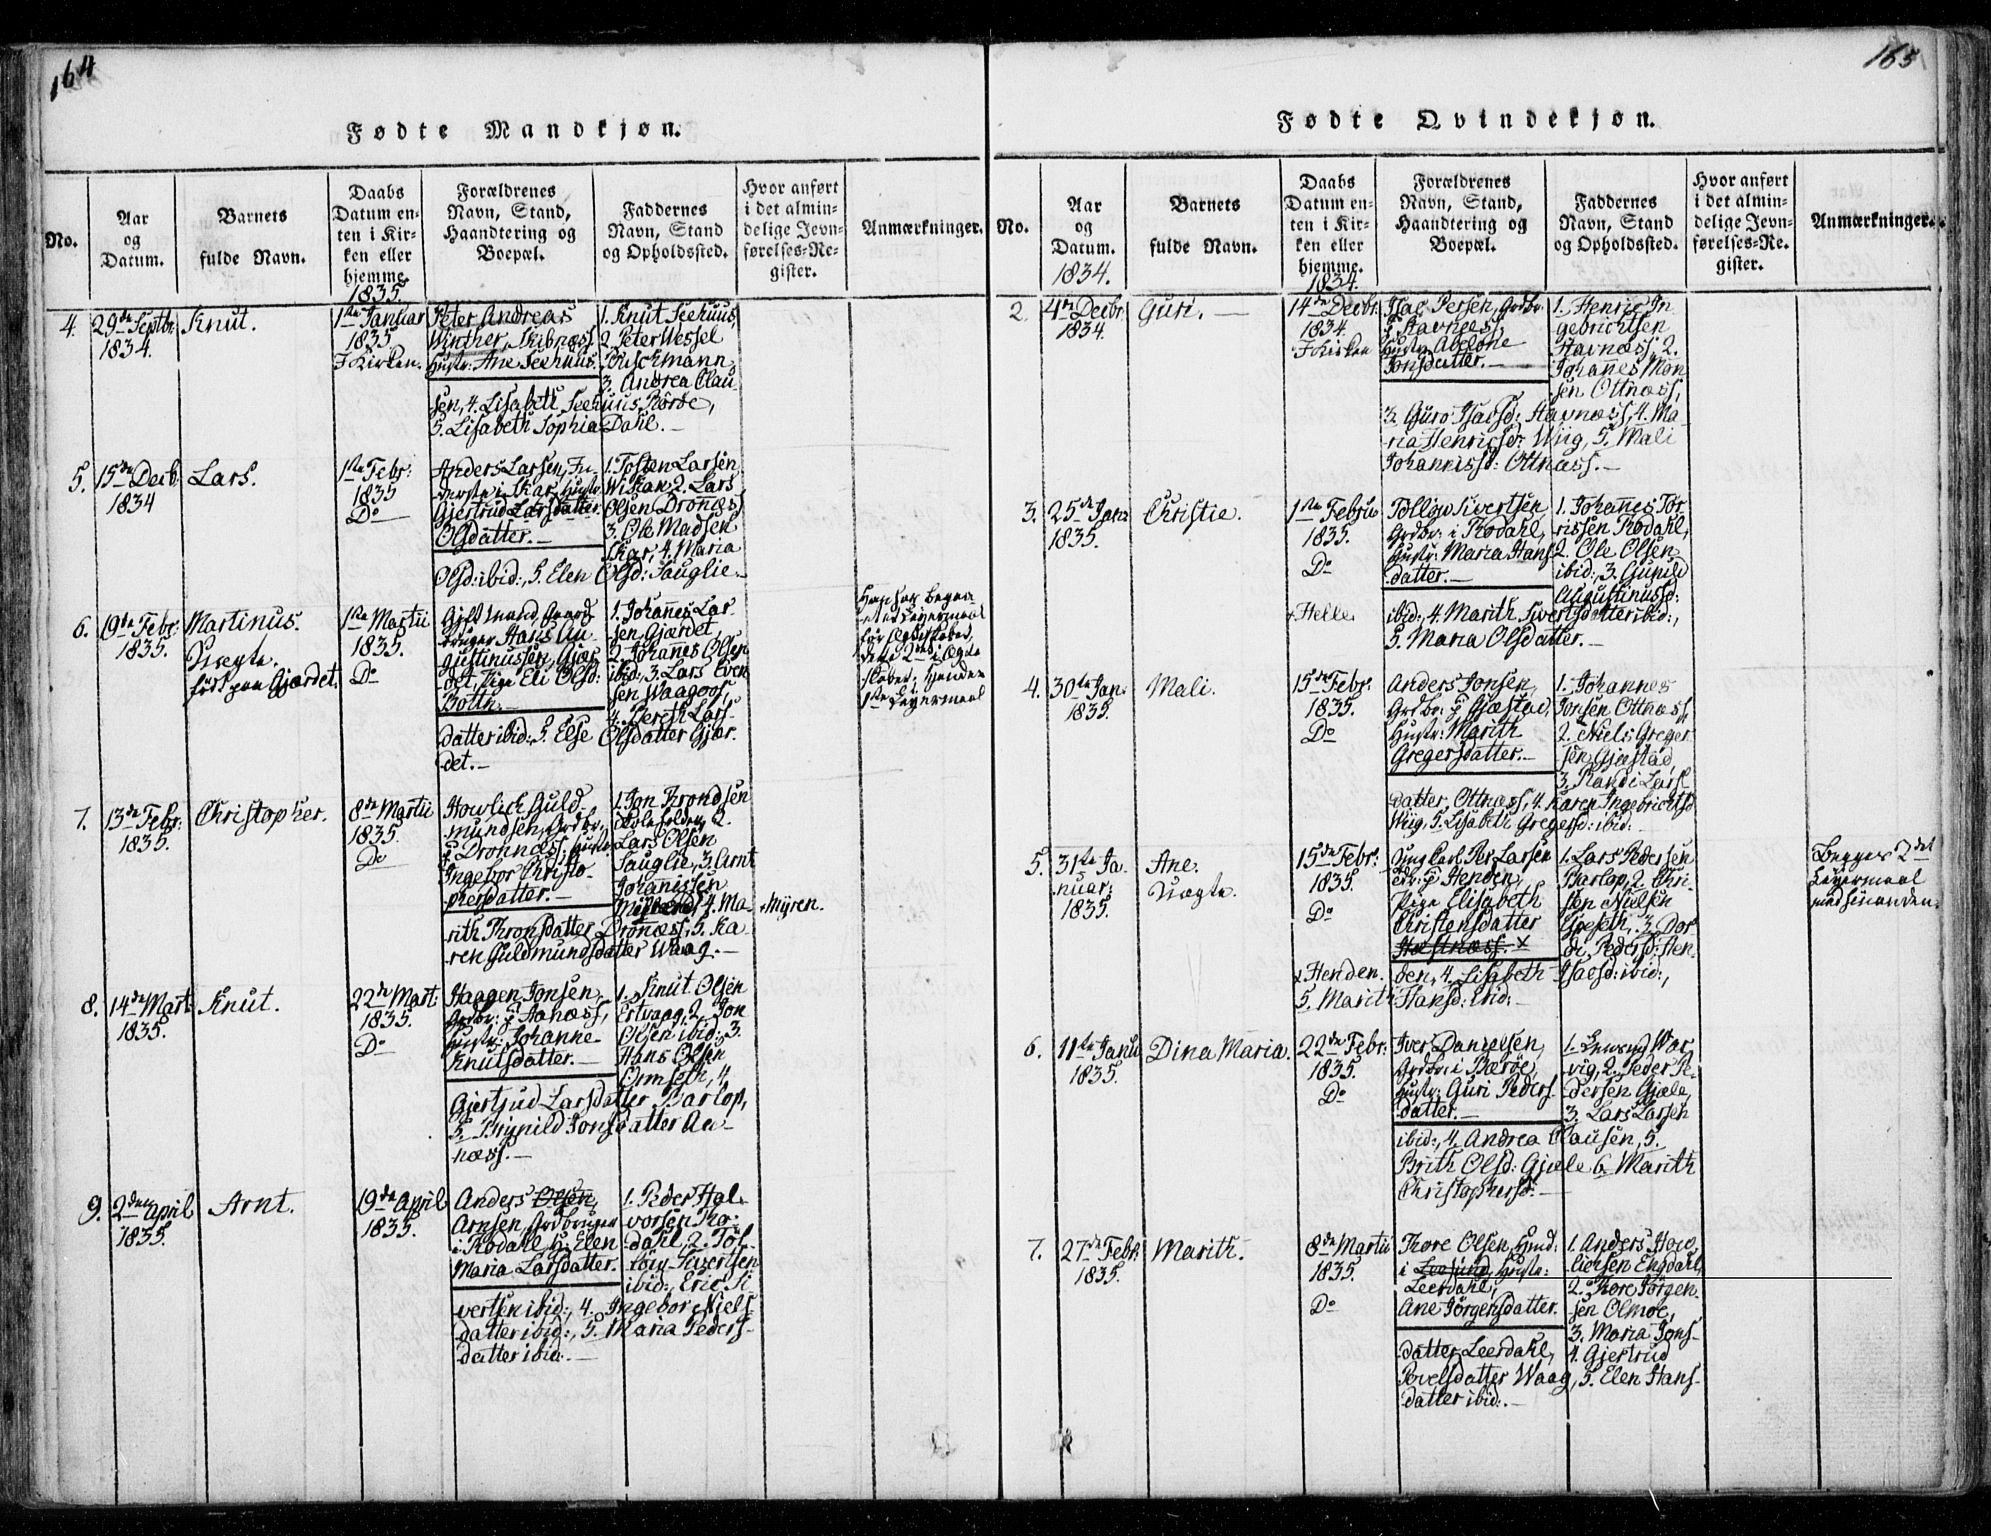 164
Fødte Mandkjøn.
No.
Aar
og
Datum.
Barnets
fulde Navn.
Daabs
Datum en-
ten i Kir-
ken eller
hjemme.
1835.
Forældrenes
Navn, Stand,
Haandtering og
Boepæl.
Faddernes
Navn, Stand
og Opholdssted.
Hvor anført
i det almin-
delige Jevn-
førelses-Re-
gister.
Anmærkninger.
4.
29de Septbr.
1834.
Knut.
1ste Januar
1835
I Kirken.
Peter Andreas
Winther, Skibnæss
Hustr: Ane Seehuus.
1. Knut Seehuus,
2. Peter Wessel
Buschmann,
3. Andrea Clau
sen, 4. Lisabeth Seehuus Rörde,
5. Lisabeth Sophia Dahl.—
5.
15de Decb.
1834
Lars.
1ste Febr:
1835
Do
Anders Larsen, In-
derste i Skar, Hustr
Gjertrud Larsdatter
Olsdatter.—
1. Tosten Larsen
Wikan 2. Lars
Olsen Dronæss
3. Ole Madsen
Skar, 4. Maria
Olsd: ibid:, 5. Elen Olsd: Sauglie.—
6.
19de Febr:
1835.
Martinus.
Uægte.
født paa Gjærdet.
1ste Martii
1835.
Do
Gift Mand, Gaard
bruger Hans Au
gustinussen, Gjær
det, Pige Eli Olsd:
Bottn.—
1. Johannes Lar-
sen Gjærdet
2. Johannes Olsen
ibid:, 3. Lars Even
sen Waagoos,
4. Bereth Lars-
datter ibid:, 5. Else Olsdatter Gjær-
det.—
Han har begaa-
et Leiermaal
før Ægteskabet,
dette 2det i Ægte
skabet, hendes
1ste Leyermaal
7.
13de Febr:
1835.
Christopher.
8de Martii
1835.
Do
Howlich Guld-
mundsen, Grdbr.
p Dronnæss, Hustr
Ingebor Christo-
phersdatter.—
1. Jon Trondsen
2.
Lars Olsen
Sauglie, 3. Arnt
Johannissen
4. Ma-
+ Myren.
rith Thronsdatter Dronæss, 5. Ka-
ren Guldmundsdatter Waag.—
8.
14de Mart:
1835.
Knut.
22de Mart:
1835.
Do
Haagen Jonsen,
Grdbr: p Aanæss,
Hustr: Johanne
Knutsdatter.—
1. Knut Olsen
Ertvaag, 2. Jon
Olsen ibid:, 3.
Hans Olsen
Ormseth, 4.
Gjertrud Larsdatter Barlop,
5. Brynild Jonsdatter Aa-
næss.—
9.
2den April
1835.
Arnt.
19de April
1835.
Anders Olsen,
Arnsen, Grdbruger
i Rodahl, H: Elen
Maria Larsdatter.
1. Peder Hal-
vorsen Ro-
dahl, 2. Töl-
löw Siwertsen
ibid:, Eric Si
vertsen ibid:, 4. Ingebor Niels
datter ibid:, 5. Maria Peders-
datter ibid:.—
165
Fødte Qvindekjøn.
No.
Aar
og
Datum.
1834.
Barnets
fulde Navn.
Daabs
Datum en-
ten i Kir-
ken eller
hjemme.
1834.
Forældrenes
Navn, Stand,
Haandtering og
Boepæl.
Faddernes
Navn, Stand
og Opholdssted.
Hvor anført
i det almin-
delige Jevn-
førelses-Re-
gister.
Anmærkninger.
2.
4de Decbr.
1834.
Guri.—
14de Decbr.
1834.
I Kirken
Isac Persen, Grdbr.
p Stavnæss,
Hustr. Abelone
Jonsdatter.—
1. Henric In
gebrichtsen
Stavnæss, 2.
Johannes Mon
sen Ottnæss,
3. Guro Isacsd: Stavnæss, 4. Ma-
ria Henricsd: Wiig, 5. Mali
Johannissd: Ottnæss.—
3.
25de Jan:
1835.
Christie.
1ste Februa
1835.
Do
Töllöw Sivertsen
Grdbr: i Rodahl,
Hustr: Maria Hans
datter.—
1. Johannes Tör-
rissen Rodahl,
2. Ole Olsen
ibid:, 3. Gunild
Augustinussd:
+ Helle
ibid:, 4. Marith Sivertsdatter ibid:,
5. Maria Olsdatter.—
4.
30te Jan.
1835.
Mali.
15de Febr.
1835.
Do
Anders Jonsen,
Grdbr: p Gjøstad,
Hustr: Marith
Gregersdatter.—
1. Johannes
Jonsen Ottnæss,
2. Niels Greger
sen Gjøstad,
3. Randi Lars-
datter, Ottnæss, 4. Karen Ingebrichtsd
Wiig, 5. Lisabeth Gregersd: ibid:—
5.
31te Ja-
nuar:
1835.
Ane.
Uægte.
15de Febr:
1835.
Do
Ung Karl Per Larsen
p Henden,
Pige Elisabeth
Christensdatter
1. Lars Pedersen
Barlop, 2. Chri-
sen Nielsen
3. Dor
di Pedersd: Hen-
+ Henden.
den, 4. Lisabeth Isacsd: ibid:,
5. Marith Hansd: ibid:—
Begges 2det
Leyermaal
med hinanden.
6.
11te Janu
1835.
Dina Maria.
22de Febr:
1835.
Do
Iver Danielsen,
Grdbr. i Bæröe,
Hustr: Guri Peders-
datter.—
War
vig, 2. Peder Pe-
dersen Gjøle,
3. Lars Larsen
ibid:, 4. Andrea Clausen, 5.
Brith Olsd: Gjøle 6. Marith
Christophersd:—
7.
27de Febr:
1835.
Marith.
8de Martii
1835.
Do
Thore Olsen,
i Leesund, Hustr:
Leerdahl,
Ane Jörgensdatter.
1. Anders How
lichsen Engdahl,
2. Thore Jörgen-
sen Olmoe,
3. Maria Jons-
datter Leerdahl, 4. Gjertrud
Povelsdatter Waag, 5. Elen Hans-
datter ibid:.—